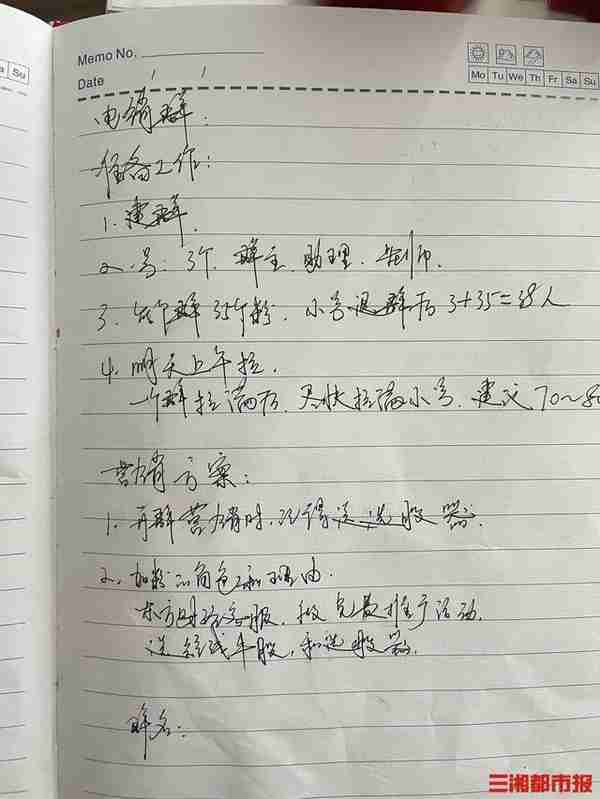 Memo No.
Date / /
Mo Tu We Th Fr Sa Su
a Su
电销群:
准备工作:
1. 建群.
2. 号: 3个. 群主. 助理. 老师.
3. 每个群35个粉. 小号退群后 3+35=38人
4. 明天上午拉.
一个群拉满后. 尽快拉满小号. 建议70~80
营销方案:
1. 再群营销时, 记得送选股器.
2. 加粉的角色和理由.
东方财富客服, 做免费推广活动.
送短线牛股, 和选股器.
群名:
三湘都市报